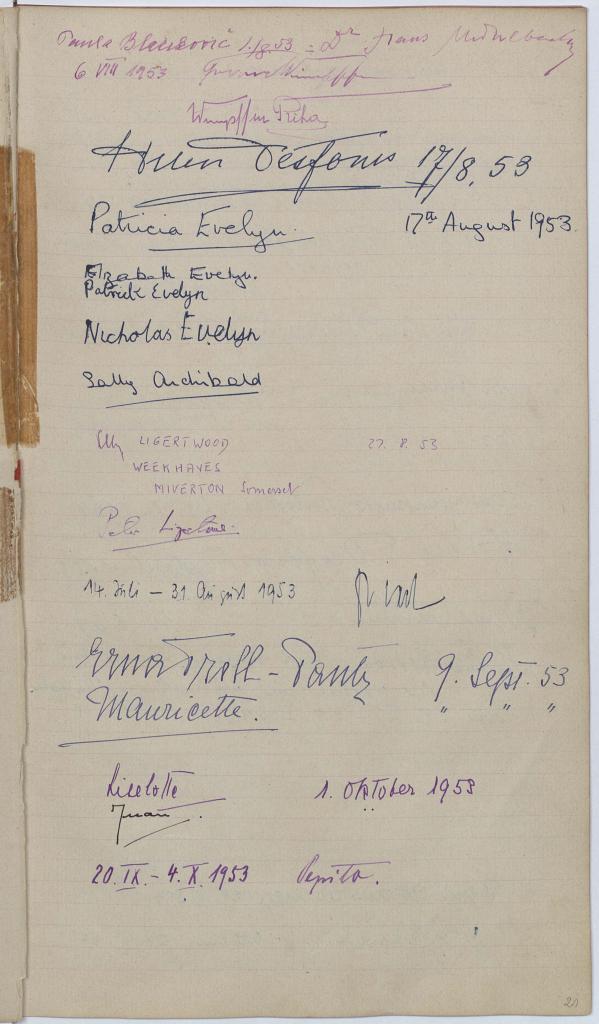 Paula 1./8.53 = Dr Frans
6 VIII 1953
Wimpffen
17/8. 53
Patricia Evelyn. 17th August 1953.
Elizabeth Evelyn.
Patrick Evelyn
Nicholas Evelyn
Sally Archibald
Elly LIGERTWOOD 27. 8. 53
WEEKHAYES
MIVERTON Somerset
14. Juli – 31. August 1953
Erna Troll - 9. Sept. 53
Mauricette. " " "
Liselotte 1. Oktober 1953
Juan.
20. IX. - 4. X. 1953 Pepita.